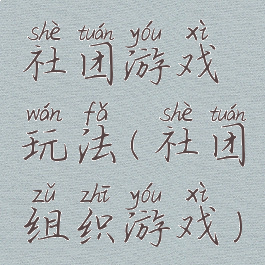 shè tuán yóu xì
社团游戏
wán fǎ shè tuán
玩法(社团
zǔ zhī yóu xì
组织游戏)